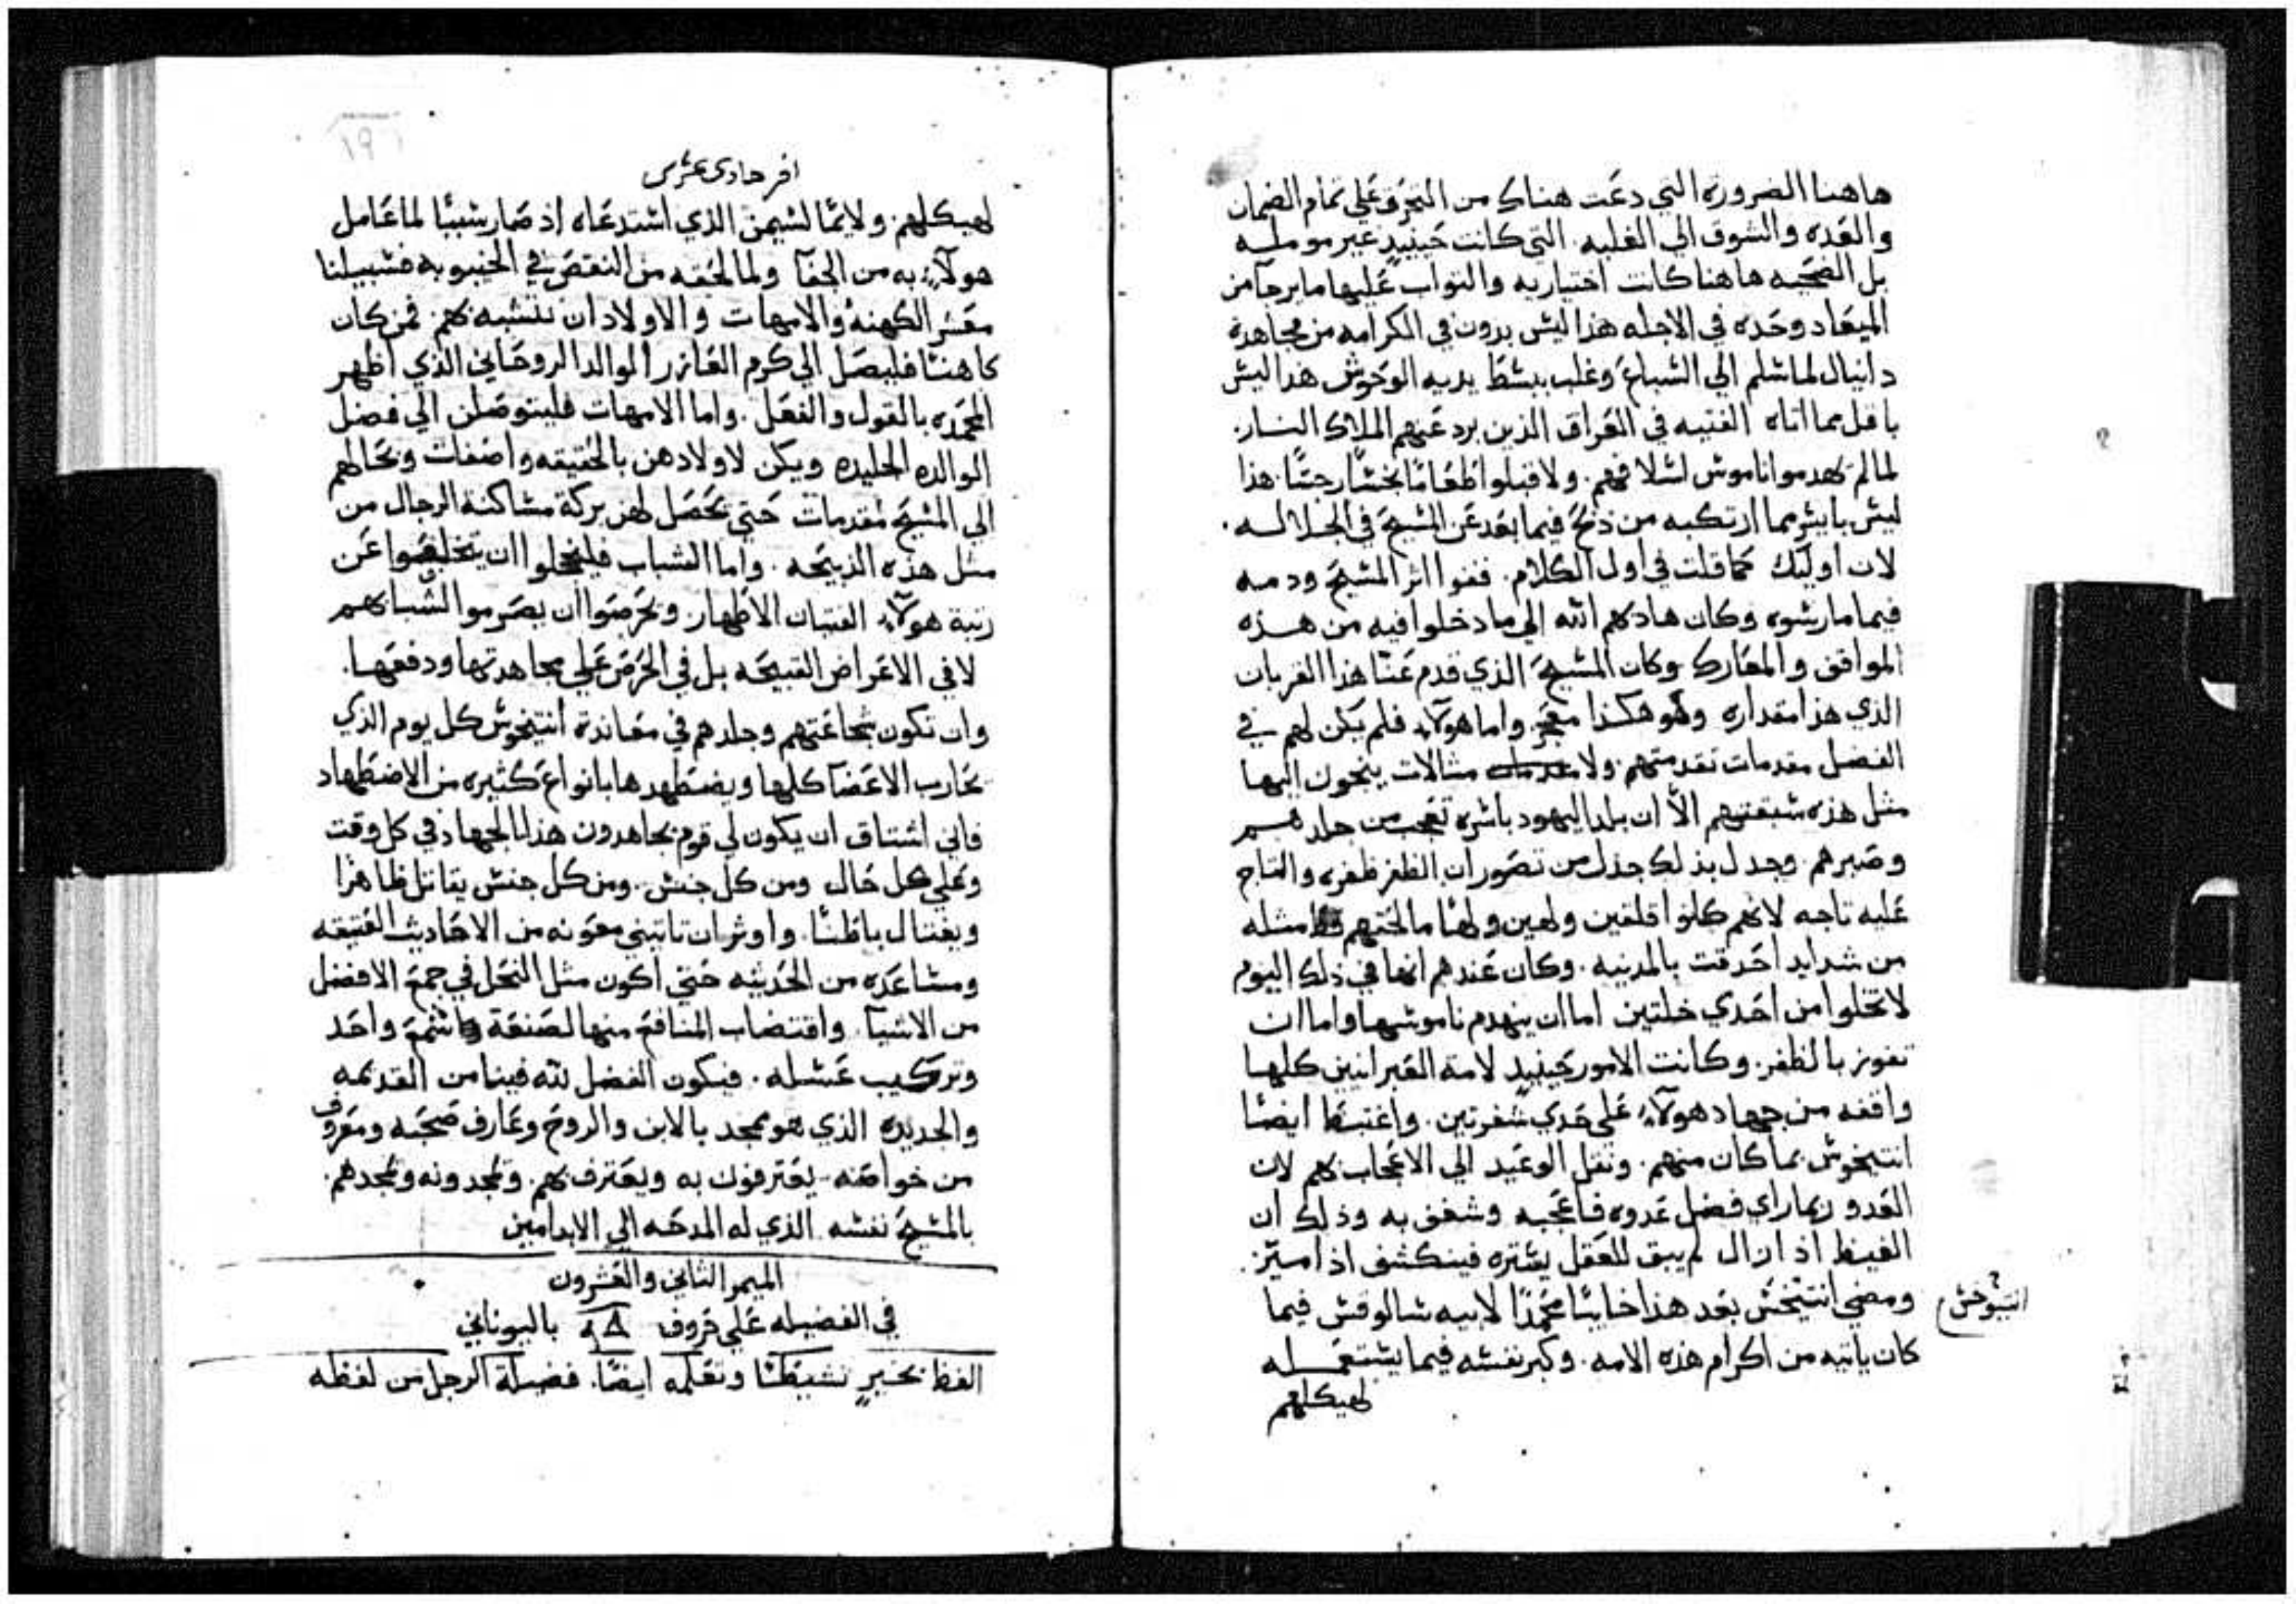 هاهنا الضروره التي دعت هناك من التحرق علي تمام الضمان
والعده والشوق الي الغلبه. التي كانت حينيدٍ غير مومله
بل الضحيه هاهنا كانت اختياريه والتواب عليها ما يرجا من
الميعاد وحده في الاجله هذا ليس بدون في الكرامه من مجاهدة
دانيال لما سلم الي السباع وغلب ببسط يديه الوحوش هذا ليس
باقل مما اتاه الفتيه في العراق الذين برد عنهم الملاك النار.
لما لم يهدموا ناموس اسلافهم. ولا قبلوا طعامًا نجسًا رجسًا. هذا
ليس بايسر مما ارتكبه من ذبح فيما بعد عن المسيح في الجلاله.
لان اوليك كما قلت في اول الكلام. قفوا اثر المسيح ودمه
فيما مارسوه وكان هاديهم الله الي ما دخلوا فيه من هذه
المواقف والمعارك وكان المسيح الذي قدم عنا هذا القربان
الذي هذا مقداره وهو هكذا معجز واما هولآء فلم يكن لهم في
الفضل مقدمات تقدمتهم ولا مثالات ينحون اليها
مثل هذه سبقتهم الا ان بلد اليهود باسره تعجب من جلدهم
وصبرهم. وجدل بذلك جذل من تصور ان الظفر ظفره والتاج
عليه تاجه لانهم كانوا قلقين ولهين ولهًا ما لحقهم مثله
من شدايد احدقت بالمدينه. وكان عندهم انها في ذلك اليوم
لا تخلوا من احدي خلتين اما ان ينهدم ناموسها واما ان
تفوز بالظفر. وكانت الامور حينيدٍ لامة العبرانيين كلها
واقفه من جهاد هولآء علي حدي شفرتين. واغتبط ايضًا
انتيخوس بما كان منهم. ونقل الوعيد الي الاعجاب بهم لان
العدو ربما راي فضل عدوه فاعجبه وشغف به وذلك ان
الغيظ اذا زال لم يبق للعقل يستره فينكشف اذا ميز.
ومضي انتيخس بعد هذا خايبًا محمدًا لابيه سالوقس فيما
انتيوخس
كان ياتيه من اكرام هذه الامه. وكبر نفسه فيما يستعمله
لهيكلهم
افر حادى عشر
لهيكلهم. ولايمًا لسيمن الذي استدعاه اذ صار سببًا لما عامل
هولآء به من الجفآ ولما لحقه من النقص في الخيبوبه فسبيلنا
معشر الكهنة والامهات والاولاد ان نتشبه بهم. فمن كان
كاهنًا فليصل الي كرم العازر الوالد الروحاني الذي اظهر
المحمده بالقول والفعل. واما الامهات فليتوصلن الي فضل
الوالده الجليده ويكن لاولادهن بالحقيقه واضعات وبحالهم
الي المسيح مقدمات حتي تحصل لهن بركة مساكنة الرجال من
مثل هذه الذبيحه. واما الشباب فليخجلوا ان يتخلفوا عن
رتبة هولآء الفتيان الاطهار. ويحرصوا ان يصرموا شبابهم
لا في الاعراض القبيحه بل في الحرص علي مجاهدتها ودفعها.
وان تكون شجاعتهم وجلدهم في معاندة انتيخوس كل يوم الذي
يحارب الاعضا كلها ويضطهدها بانواع كثيره من الاضطهاد
فاني اشتاق ان يكون لي قوم يجاهدون هذا الجهاد في كل وقت
وعلي كل حال ومن كل جنس. ومن كل جنس يقاتل ظاهرًا
ويغتال باطنًا. واوثر ان تاتيني معونه من الاحاديث العتيقه
ومساعده من الحديثه حتي اكون مثل النحل في جمع الافضل
من الاشيآ. واقتضاب المنافع منها لصنعة شمع واحد
وتركيب عسله. فيكون الفضل لله فينا من القديمه
والجديده الذي هو ممجد بالابن والروح وعارف صحبه ومعروف
من خواصه. يعترفون به ويعترف بهم. ويمجدونه ويمجدهم.
بالمسيح نفسه الذي له المدحه الي الابد امين
الميمر الثاني والعشرون
في الفضيله علي حروف باليوناني
الفظ بخيرٍ نشيطًا وتعلمه ايضًا. فضيلة الرجل من لفظه